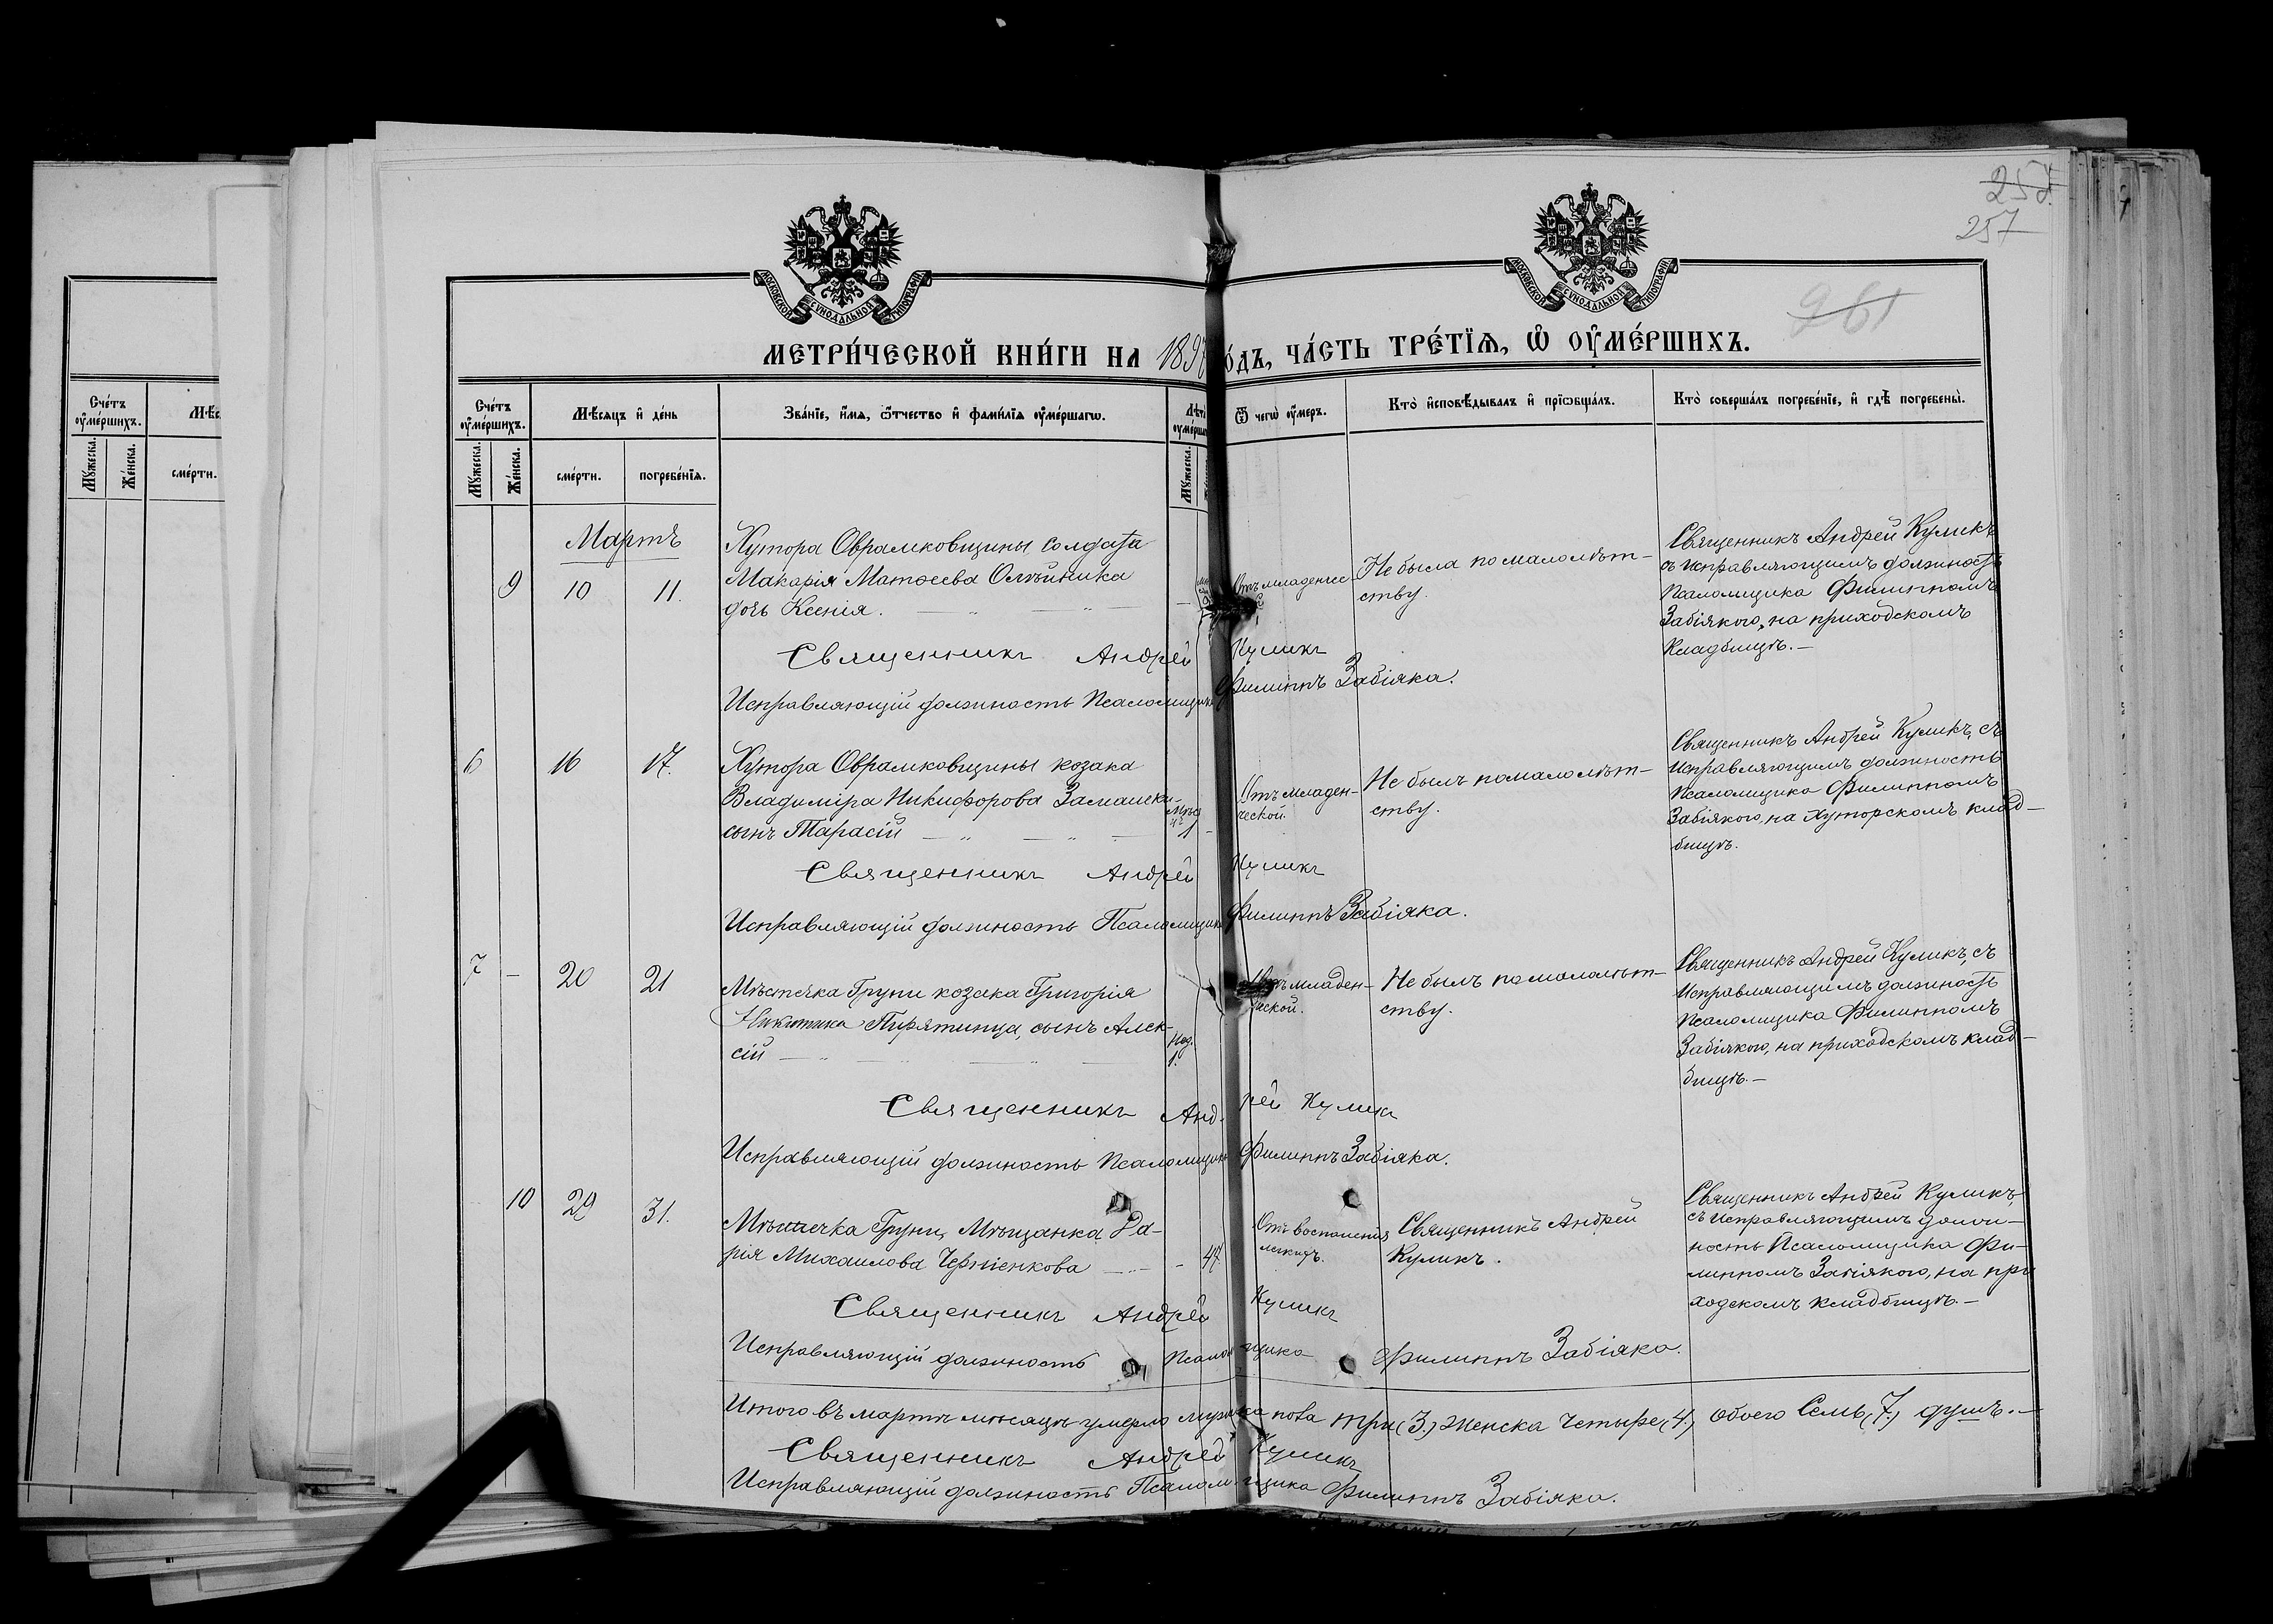 254
257
261
МОСКОВСКОЙ СѴНОДАЛЬНОЙ ТИПОГРАФІИ
МОСКОВСКОЙ СѴНОДАЛЬНОЙ ТИПОГРАФІИ
МЕТРИ́ЧЕСКОЙ КНИ́ГИ НА 189
О́ДЪ, ЧА́СТЬ ТРЕ́ТЇѦ, Ѡ҆ ОУ҆МЕ́РШИХЪ.
Сче́тъ оу҆ме́ршихъ.
Мꙋ́жеска.
Же́нска.
сме́рти.
Сче́тъ оу҆ме́ршихъ.
Мꙋ́жеска.
Же́нска.
Мѣ́сяцъ и҆ де́нь
сме́рти.
погребе́нїя.
Зва́нїе, и҆́мя, ѻ҆́тчество и҆ фами́лїя оу҆ме́ршагѡ.
Мꙋ́жеска.
Ѿ чегѡ̀ оу҆́меръ.
Кто̀ и҆сповѣ́дывалъ и҆ прїѡбща́лъ.
Кто̀ соверша́лъ погребе́нїе, и҆ гдѣ̀ погребены̀.
Мартъ
9 10 11.
Хутора Оврамковщины солдата
Макарія Матѳеева Олѣйника
дочь Ксенія.
Отъ младенчес-
Не была по малолѣт-
ству.
Священникъ Андрей Куликъ
съ исправляющимъ должность
Псаломщика Филиппомъ
Забіякою, на приходскомъ
кладбищѣ.
Священникъ Андрей Куликъ
Исправляющій должность Псаломщика Филиппъ Забіяка.
6 16 17.
Хутора Оврамковщины козака
Владиміра Никифорова
сынъ Тарасій
1
Отъ младен-
ческой.
Не былъ по малолѣт-
ству.
Священникъ Андрей Куликъ, съ
исправляющимъ должность
Псаломщика Филиппомъ
Забіякою, на хуторскомъ клад-
бищѣ.
Священникъ Андрей Куликъ
Исправляющій должность Псаломщика Филиппъ Забіяка.
7 - 20 21
Мѣстечка Груни козака Григорія
Никитина Пирятинца, сынъ Алек-
сій
Нед.
1.
Отъ младен-
ческой.
Не былъ по малолѣт-
ству.
Священникъ Андрей Куликъ, съ
исправляющимъ должность
Псаломщика Филиппомъ
Забіякою, на приходскомъ клад-
бищѣ.
Священникъ Андрей Куликъ
Исправляющій должность Псаломщика Филиппъ Забіяка.
10 29 31.
Мѣстечка Груни, Мѣщанка Да-
рія Михаилова Черніенкова
47.
Отъ воспаленія
легкихъ.
Священникъ Андрей
Куликъ.
Священникъ Андрей Куликъ,
съ исправляющимъ долж-
ность Псаломщика Фи-
липпомъ Забіякою, на при
ходскомъ кладбищѣ.
Священникъ Андрей Куликъ
Исправляющій должность Псаломщика Филиппъ Забіяка.
Итого въ мартѣ мѣсяцѣ умерло мужска пола три (3.) женска четыре, (4.) обоего семь, (7.) душъ.
Священникъ Андрей Куликъ
Исправляющій должность Псаломщика Филиппъ Забіяка.